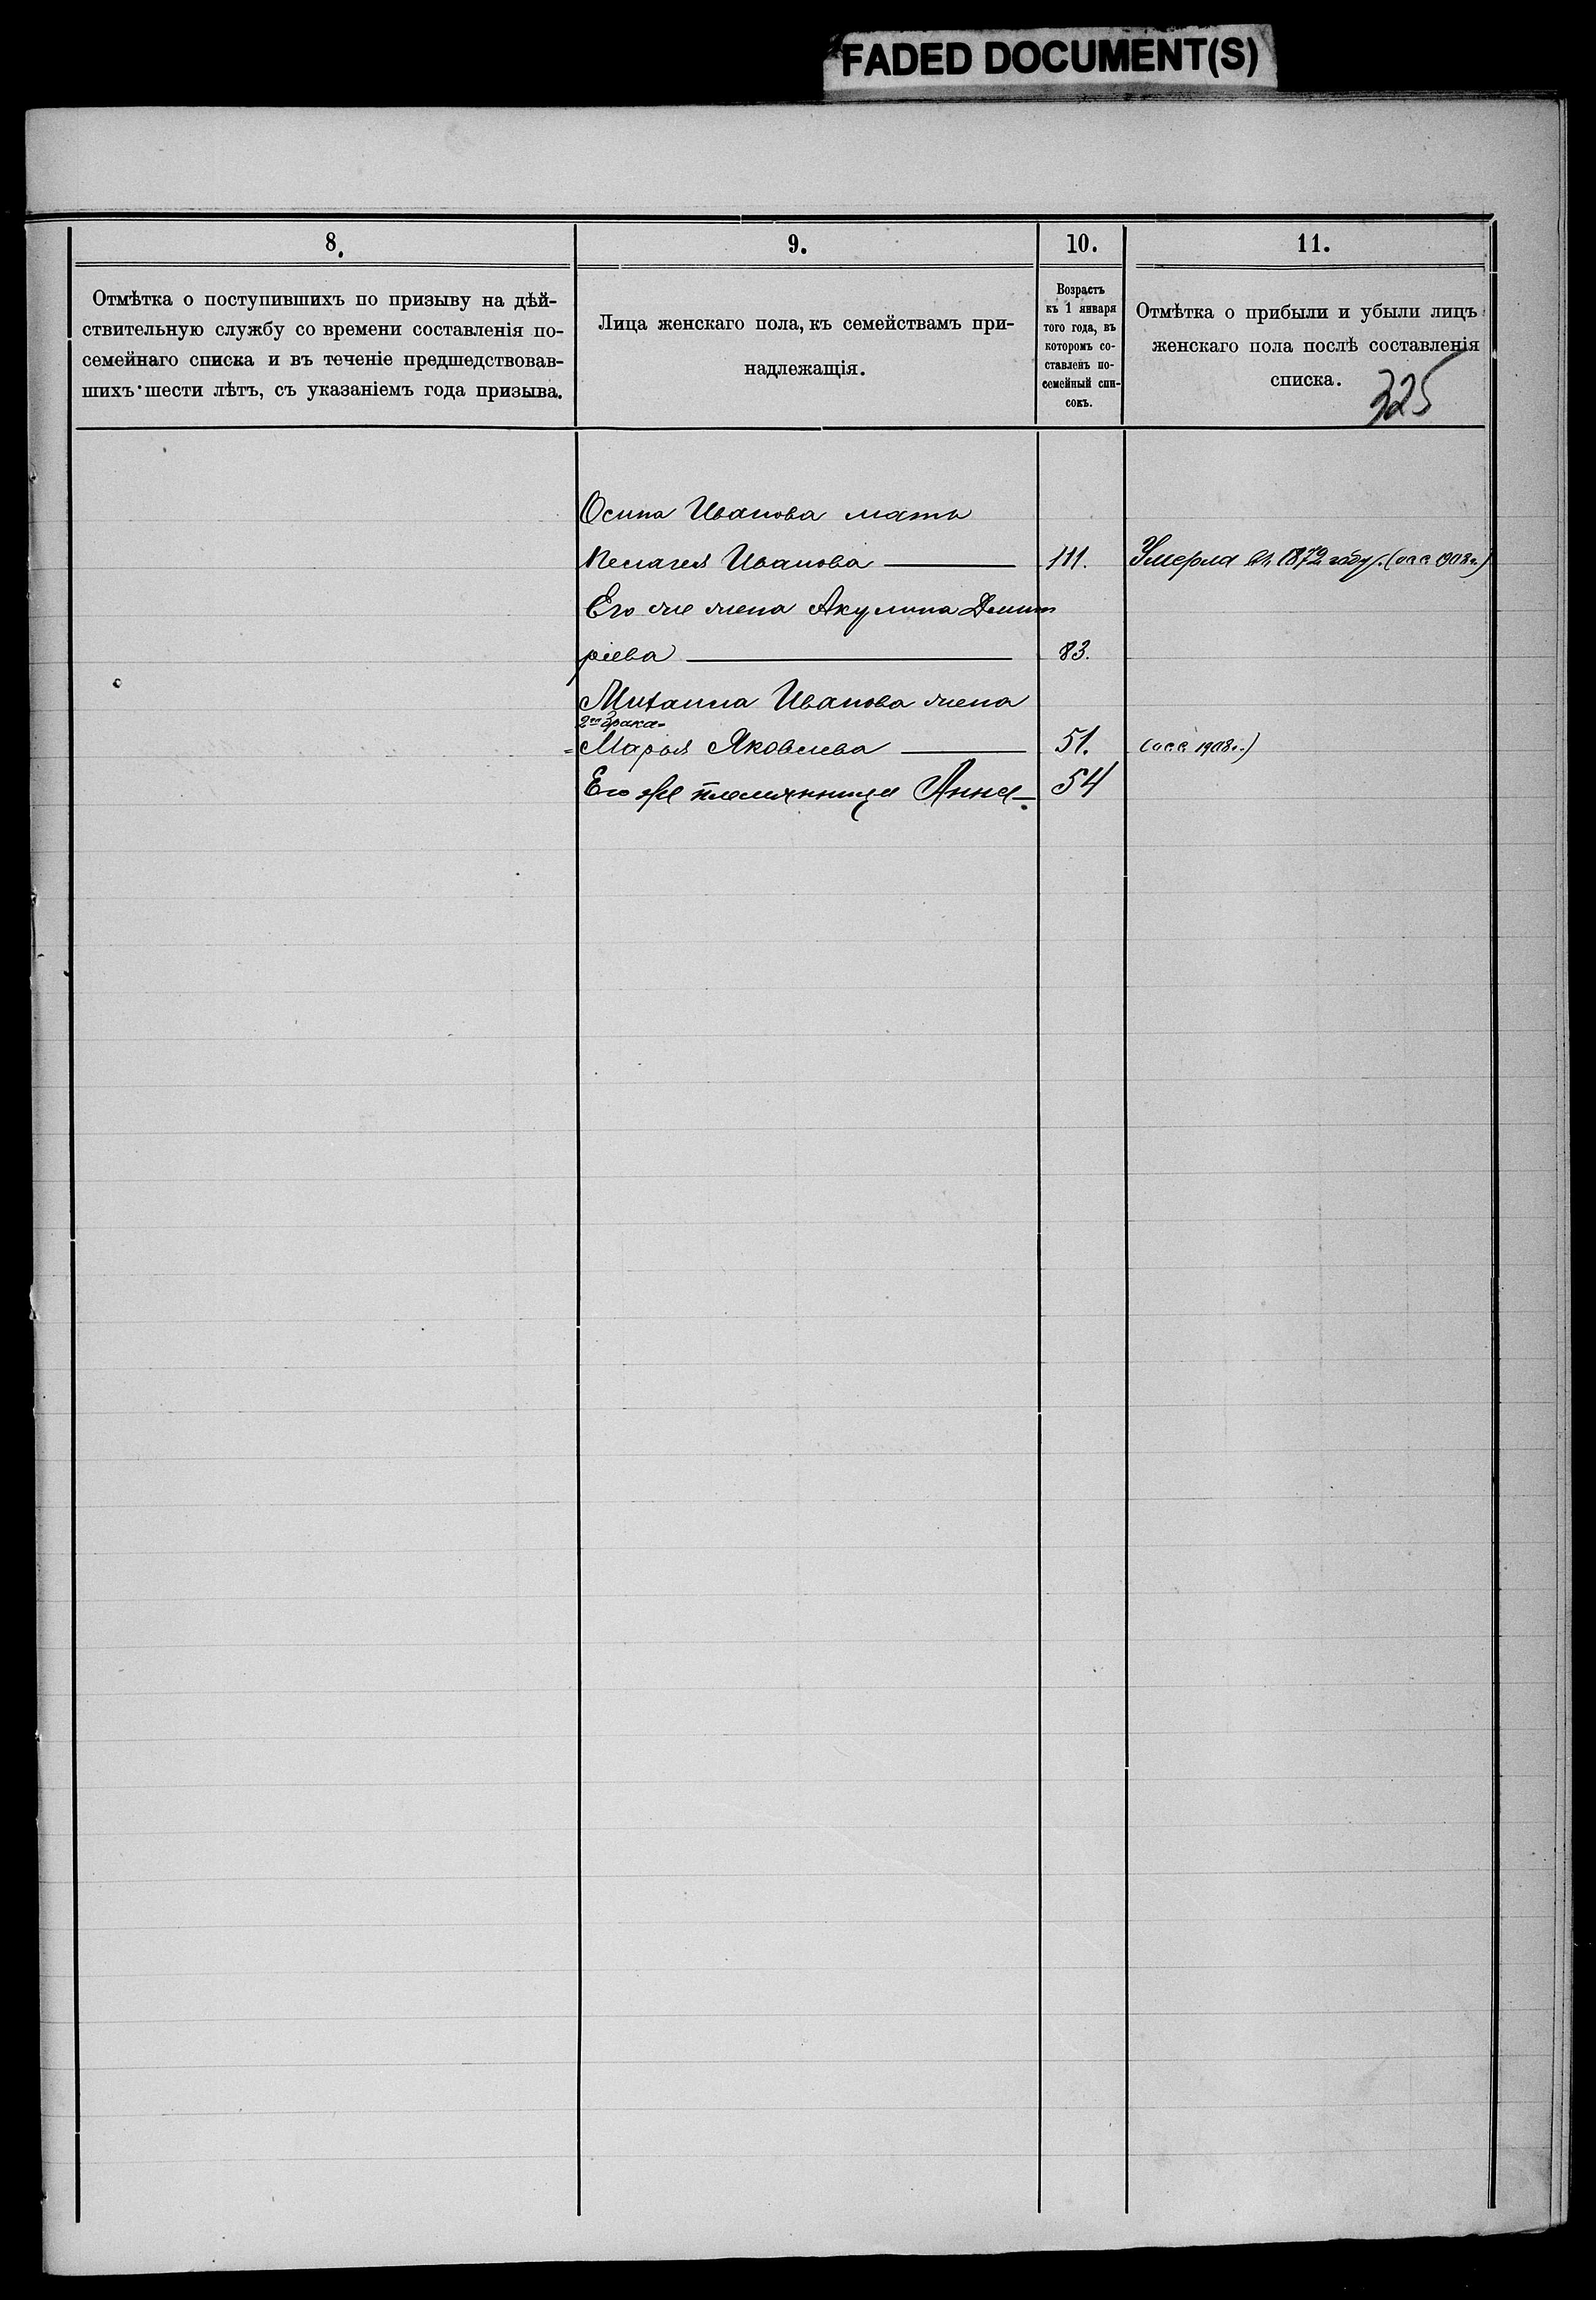 FADED DOCUMENT(S)
8.
9.
10.
11.
Отмѣтка о поступившихъ по призыву на дѣй-
ствительную службу со времени составленія по-
семейнаго списка и въ теченіе предшедствовав-
шихъ шести лѣтъ, съ указаніемъ года призыва.
Лица женскаго пола, къ семействамъ при-
надлежащія.
Возрастъ
къ 1 января
того года, въ
которомъ со-
ставленъ по-
семейный спи-
сокъ.
Отмѣтка о прибыли и убыли лицъ
женскаго пола послѣ составленія
списка.
325
Осипа Иванова мать
Пелагея Иванова 111. Умерла въ 1872 году. (асс 1908г.)
Его же жена Акулина Дмит
ріева 83.
Михаила Иванова жена
2го брака
Марья Яковлева 51. (асс 1908г.)
Его же племянница Анна 54